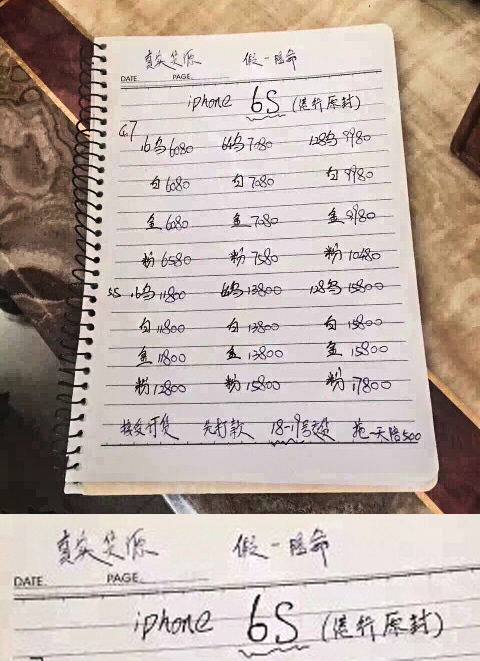 真实货源 假一赔命
DATE PAGE
iphone 6S (港行原封)
4.7 16乌6080 64乌7080 128乌9980
白6080 白7080 白9980
金6080 金7080 金9980
粉6580 粉7580 粉10480
5.5 16乌11800 64乌13800 128乌15800
白11800 白13800 白15800
金11800 金13800 金15800
粉12800 粉15800 粉17800
接受订货 先打款 18-19号交货 拖一天陪500
真实货源 假一赔命
DATE. PAGE.
iphone 6S (港行原封)